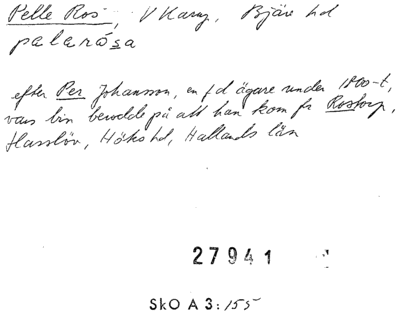 Pelle Ros, V Karup, Bjäre hd
palarósa
efter Per Johansson, en f d ägare under 1800-t,
vars bin berodde på att han kom fr Rostorp,
Hasslöv, Höks hd, Hallands län
27941
SkO A 3: 155